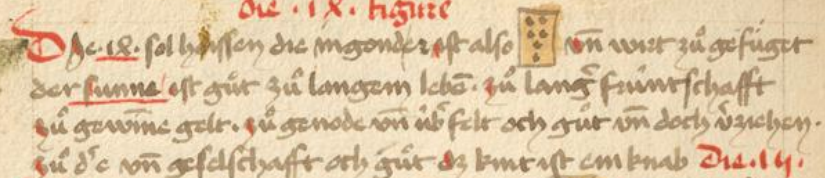 die · ix · figure
Die · ix · sol haissen die in gonder ist also vn̄ wirt zů gefüget
der sunne ist gůt zů langem lebē · zů lang̃ früntschafft
zů gewīne gelt · zů genode vn̄ üb̃ felt och gůt vn̄ doch v̄ziehen ·
zů vn̄ geselschafft och gůt dz kint ist ein knab Die